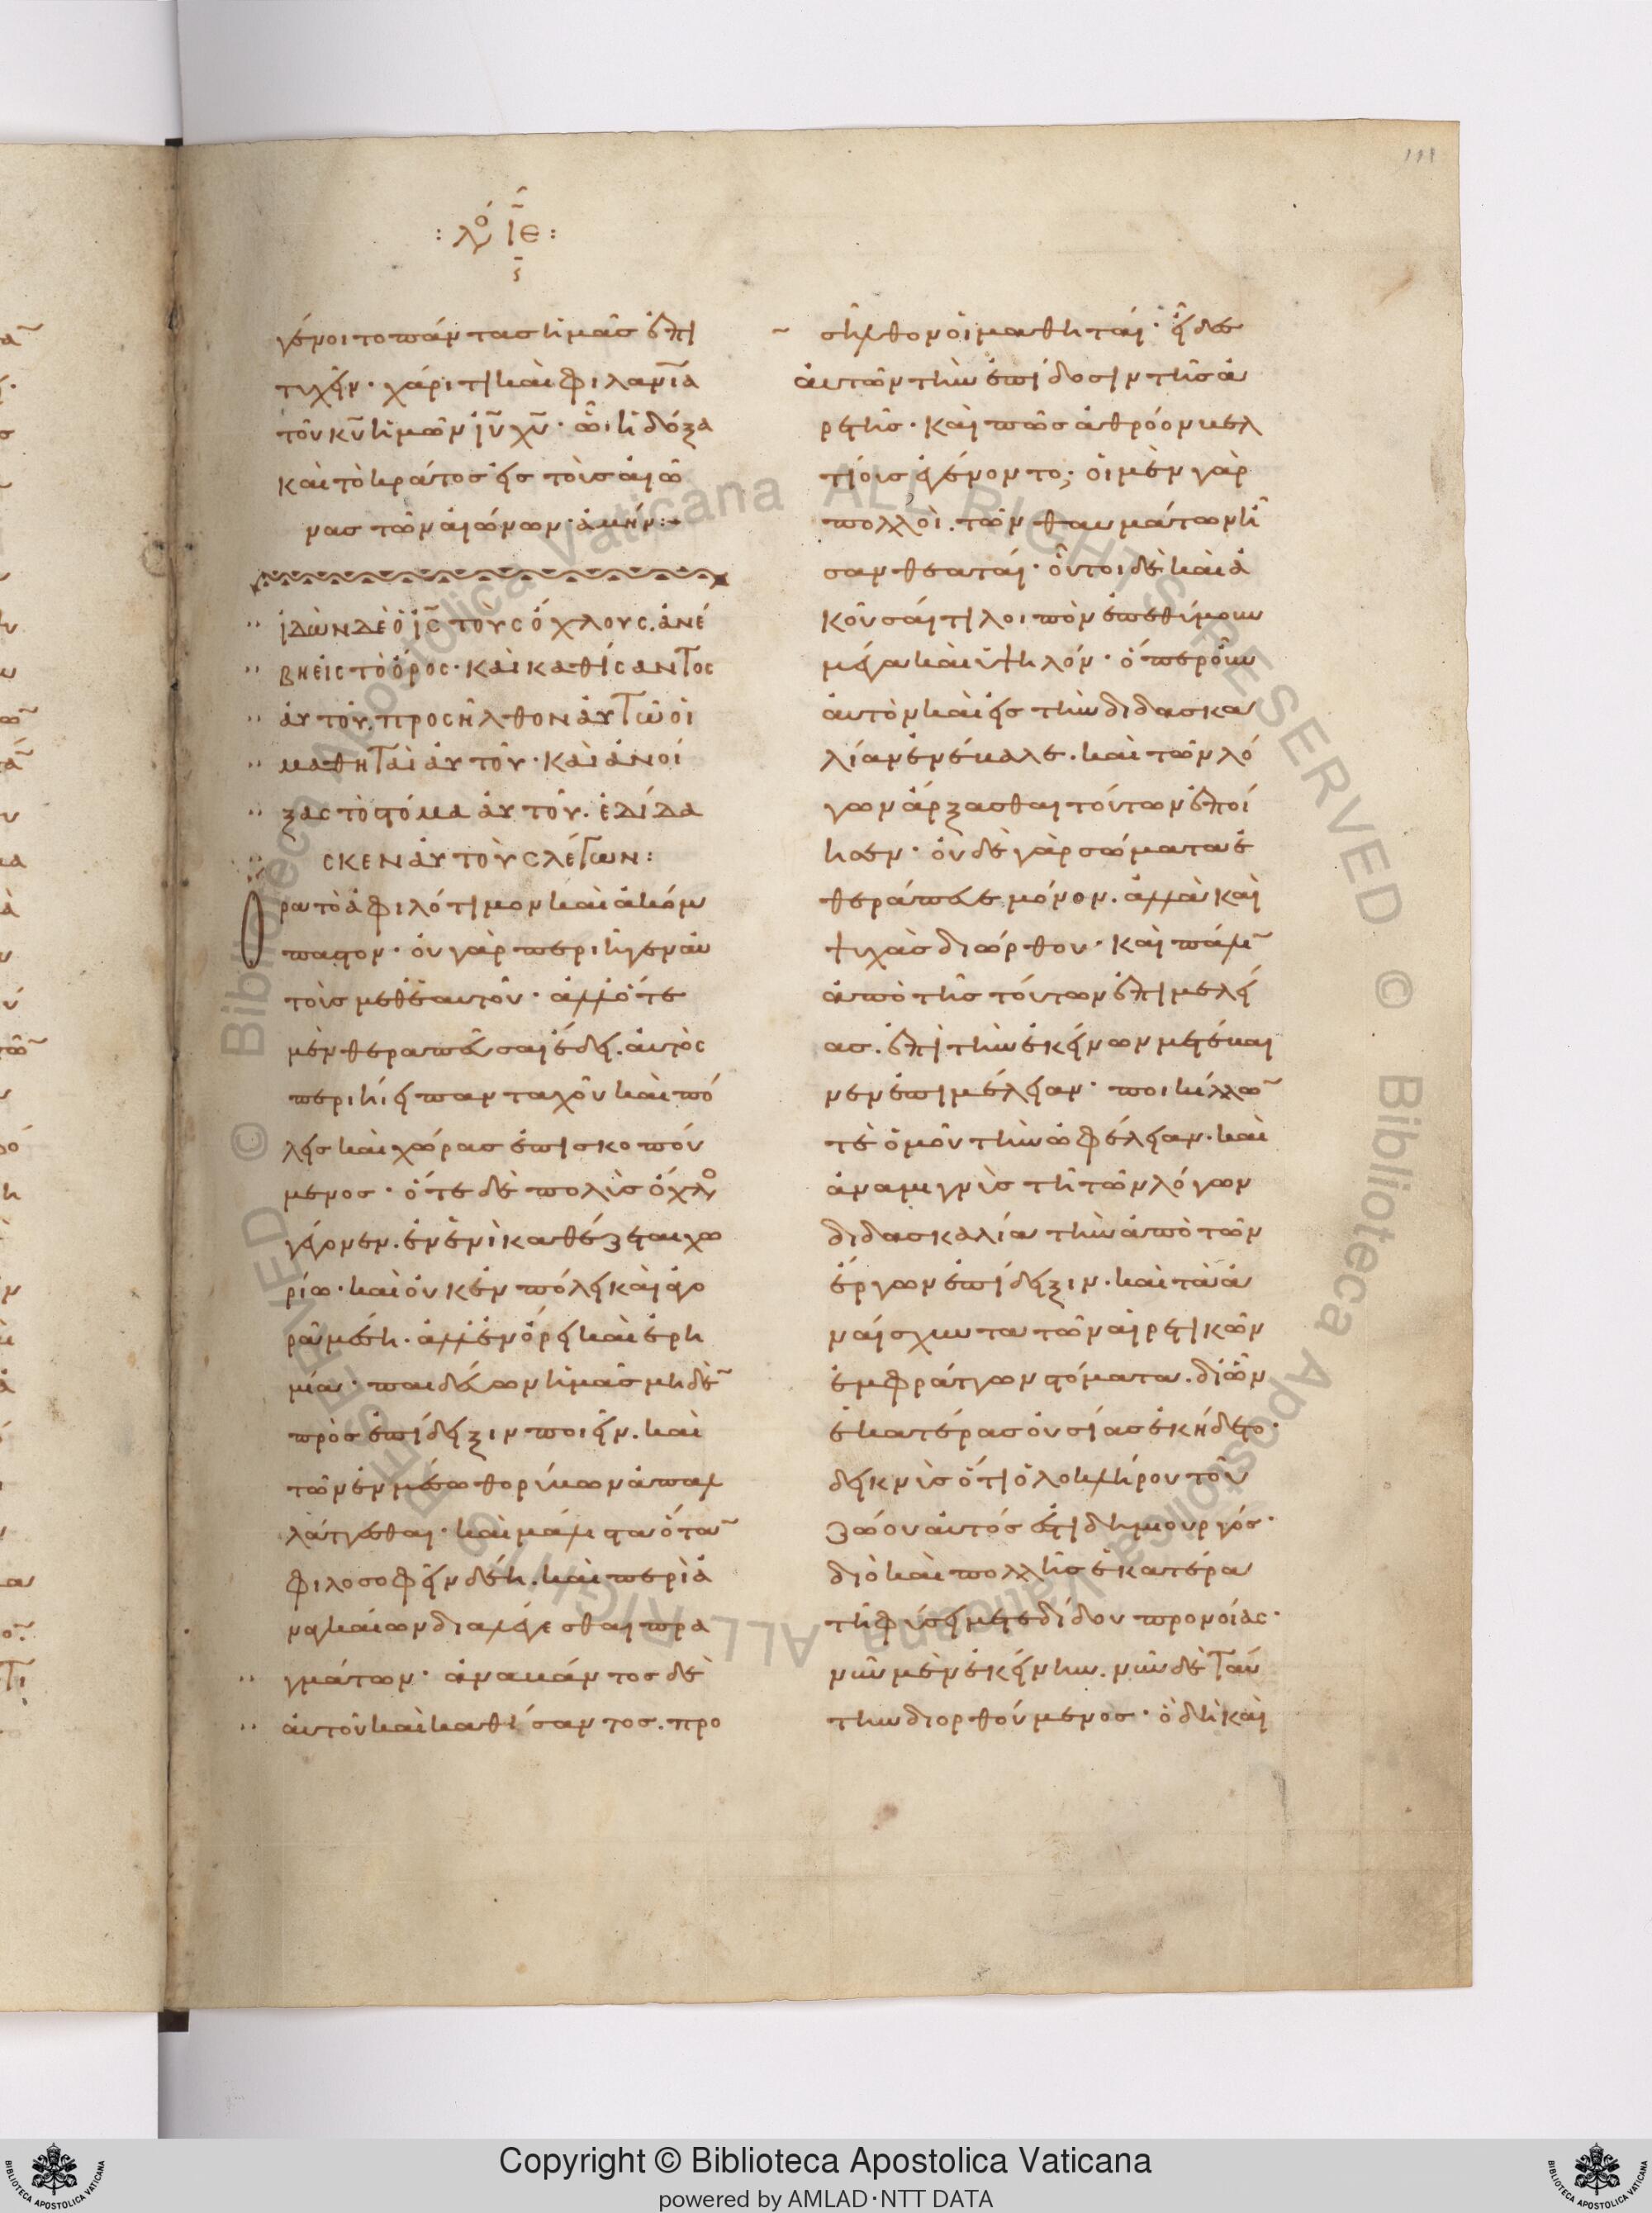 111
: λόγ ΙΕ :
ς
γένοιτο πάντας ἡμᾶς ἐπι
τυχεῖν· χάριτι καὶ φιλανΐα
τοῦ κῦ ἡμῶν ἰῦ χῦ· ὧι ἡ δόξα
καὶ τὸ κράτος εἰς τοὺς αἰῶ
νας τῶν αἰώνων· ἀμήν:
ἰδὼν δὲ ὁ ἰς τοὺς ὄχλους, ἀνέ
βη εἰς τὸ ὄρος· καὶ καθίσαντος
αὐτοῦ, προσῆλθον αὐτῶ οἱ
μαθηταὶ αὐτοῦ· καὶ ἀνοί
ξας τὸ στόμα αὐτοῦ, ἐδίδα
σκεν αὐτοὺς λέγων:
Ορα τὸ ἀφιλότιμον καὶ ἀκόμ
παστον· οὐ γὰρ περιῆγεν αὐ
τοὺς μεθ ἑαυτοῦ· ἀλλ ὅτε
μὲν θεραπεῦσαι ἔδει, αὐτὸς
περιήει πανταχοῦ καὶ πό
λεις καὶ χώρας ἐπισκοπού
μενος· ὅτε δὲ πολὺς ὄχλο
γέγονεν, ἐν ἑνὶ καθέζεται χω
ρίω· καὶ οὐκ ἐν πόλει καὶ ἀγο
ρᾶ μέση, ἀλλ ἐν ὄρει καὶ ἐρη
μία· παιδεύων ἡμᾶς μηδὲ
πρὸς ἐπίδειξιν ποιεῖν, καὶ
τῶν ἐν μέσω θορύβων ἀπαλ
λάττεσθαι· καὶ μάλιστα ὅτα
φιλοσοφεῖν δέη, καὶ περὶ ἀ
ναγκαίων διαλέγεσθαι πρα
γμάτων· ἀναβάντος δὲ
αὐτοῦ καὶ καθίσαντος, προ
σῆλθον οἱ μαθηταί· εἶδες
αὐτῶν τὴν ἐπίδοσιν τῆς ἀ
ρετῆς· καὶ πῶς ἀθρόον βελ
τίους ἐγένοντο; οἱ μὲν γὰρ
πολλοὶ, τῶν θαυμάτων ἦ
σαν θεαταί· οὗτοι δὲ καὶ ἀ
κοῦσαί τι λοιπὸν ἐπεθύμουν
μέγα καὶ ὑψηλόν· ὅπερ οὖν
αὐτὸν καὶ εἰς τὴν διδασκα
λίαν ἐνέβαλε, καὶ τῶν λό
γων ἄρξασθαι τούτων ἐποί
ησεν· οὐδὲ γὰρ σώματα ἐ
θεράπευε μόνον, ἀλλὰ καὶ
ψυχὰς διώρθου· καὶ πάλι
ἀπὸ τῆς τούτων ἐπιμελεί
ας, ἐπὶ τὴν ἐκείνων μετέβαι
νεν ἐπιμέλειαν· ποικίλλω
τὲ ὁμοῦ τὴν ὠφέλειαν, καὶ
ἀναμιγνὺς τῆ τῶν λόγων
διδασκαλία τὴν ἀπὸ τῶν
ἔργων ἐπίδειξιν, καὶ τὰ ἀ
ναίσχυντα τῶν αἱρετικῶν
ἐμφράττων στόματα, δι ὧν
ἑκατέρας οὐσίας ἐκήδετο·
δεικνὺς ὅτι ὁλοκλήρου τοῦ
ζώου αὐτός ἐστι δημιουργός·
διὸ καὶ πολλῆς ἑκατέρα
τῆ φύσει μετεδίδου προνοίας·
νῦν μὲν ἐκείνην, νῦν δὲ ταύ
την διορθούμενος· ὃ δὴ καὶ
Copyright © Biblioteca Apostolica Vaticana
powered by AMLAD·NTT DATA